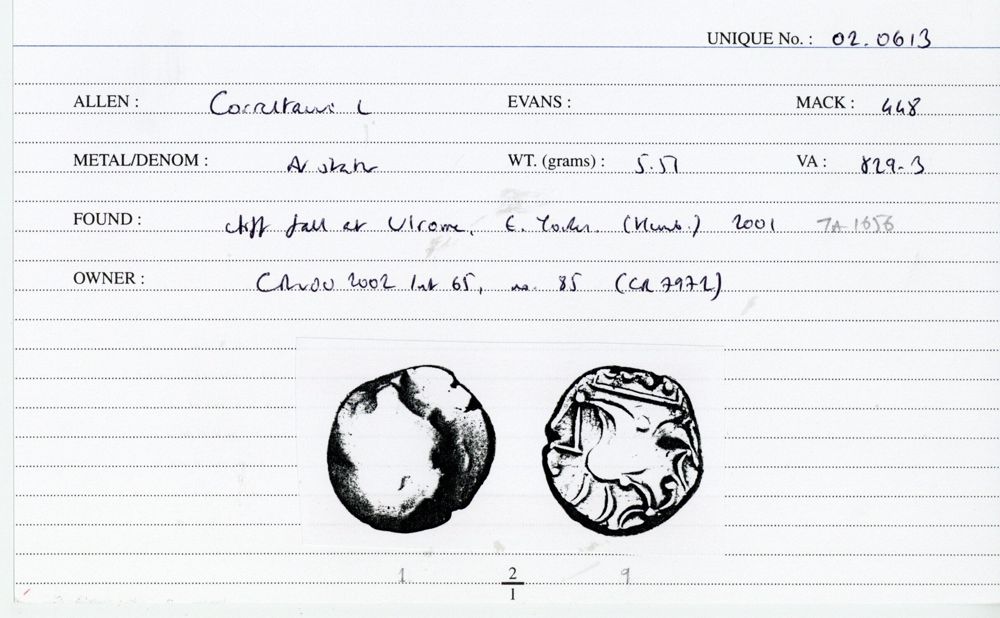 UNIQUE No. : 02.0613
ALLEN : Corieltauvi L EVANS : MACK : 448
METAL/DENOM : AV stater WT. (grams) : 5.51 VA : 829-3
FOUND : cliff fall at Ulrome, E. Yorks. (Humb.) 2001 7A 1656
OWNER : 2002 list 65, no. 85 (CR 7972)
1 2 9
1